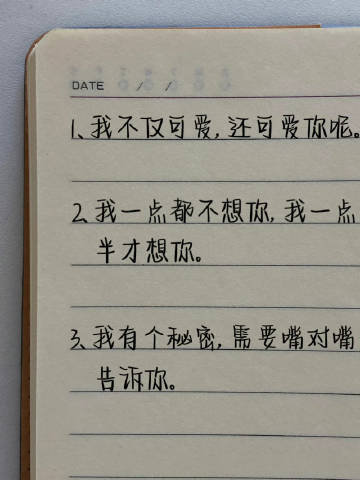 DATE / /
1、我不仅可爱,还可爱你呢。
2、我一点都不想你,我一点
半才想你。
3、我有个秘密,需要嘴对嘴
告诉你。